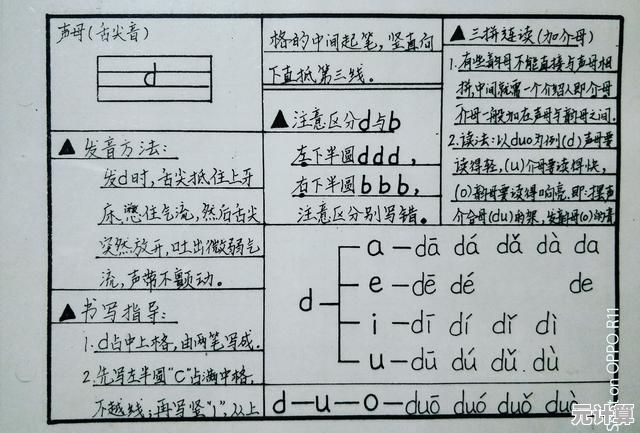 声母(舌尖音)
d
▲发音方法:
发d时,舌尖抵住上牙
床,憋住气流,然后舌尖
突然放开,吐出微弱气
流,声带不颤动。
▲书写指导:
1.d占中上格,由两笔写成。
2.先写左半圆"C"占满中格,
不越线;再写竖"l",从上
格的中间起笔,竖直向
下直抵第三线。
▲注意区分d与b
左下半圆ddd,
右下半圆bbb,
注意区分别写错。
▲三拼连读(加介母)
1.有些韵母不能直接与声母相
拼,中间就需一个介绍人即介母
介母一般加在声母与韵母之间.
2.读法:以duo为例(d)声母要
读得轻,(u)介母要读得快,
(o)韵母要读得响亮.即:摆声
介合母(du)的架,发韵母(o)的音
d
a—dā dá dǎ dà da
e—dē dé de
i—dī dí dǐ dì
u—dū dú dǔ.dù
d—u—o—duō duó duǒ duò
on OPPO R11
元计算